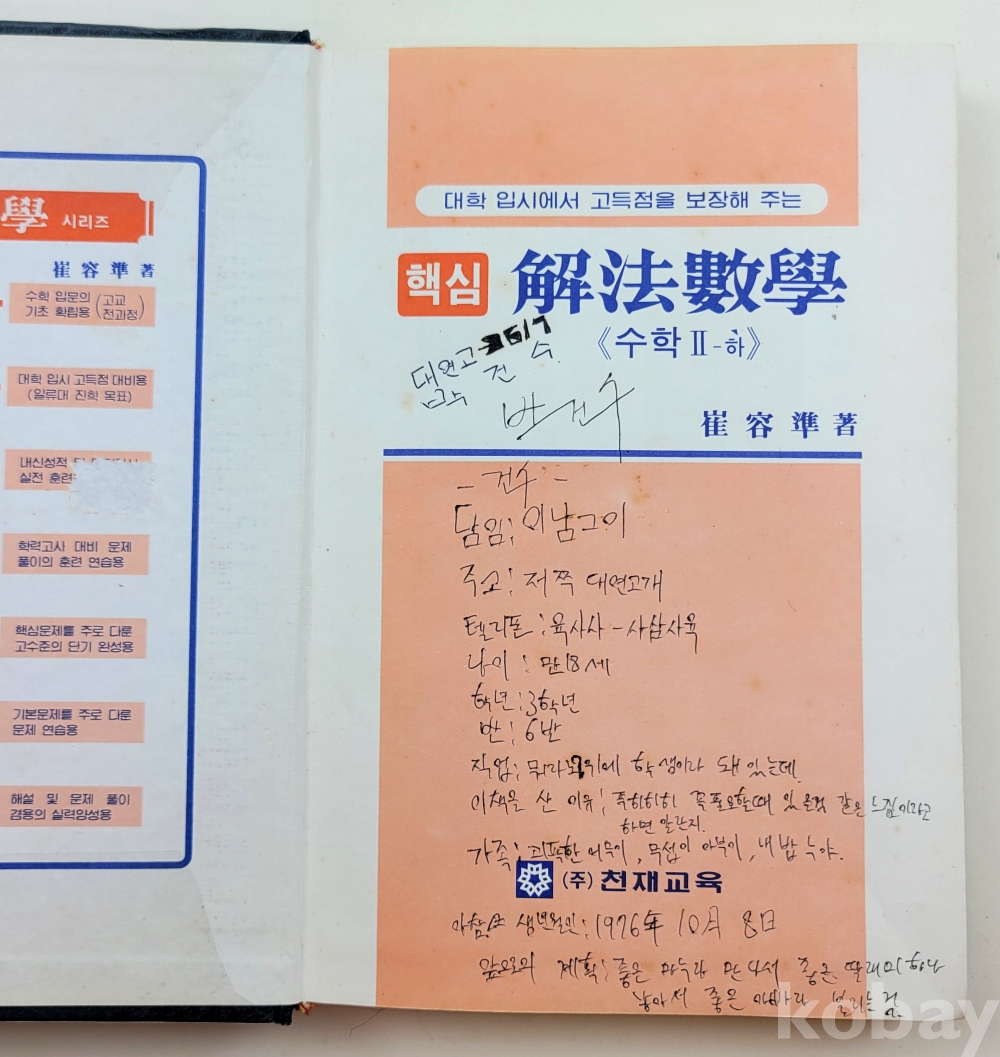 學 시리즈
崔容準 著
수학 입문의 (고교
기초 확립용 전과정)
대학 입시 고득점 대비용
(일류대 진학 목표)
내신성적
실전 훈련
학력고사 대비 문제
풀이의 훈련 연습용
핵심문제를 주로 다룬
고수준의 단기 완성용
기본문제를 주로 다룬
문제 연습용
해설 및 문제 풀이
겸용의 실력양성용
대학 입시에서 고득점을 보장해 주는
핵심 解法數學
《수학 II-하》
대연고 6/7
건수
반건수
崔容準著
- 건수 -
담임: 이남그이
주소: 저쪽 대연고개
텔리폰: 육사사-사삼사육
나이: 만18세
학년: 3학년
반: 6반
직업: 위에 학생이라 돼 있는데.
이책을 산 이유: 꼭필요할때 있을것 같은 느낌이라고
하면 알란지.
가족: 어무이, 무섭이 아부이, 내밥
(주)천재교육
아참 생년월일: 1976年 10月 8日
앞으로의 계획: 좋은 마누라 만나서 좋은 딸래미 하나
낳아서 좋은 아빠가
kobay